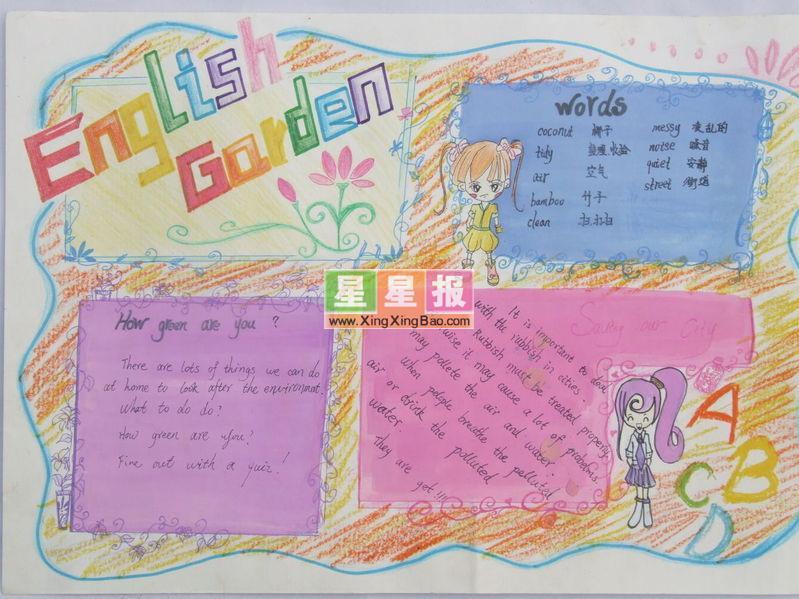 English
Garden
words
coconut 椰子
tidy 整理 收拾
air 空气
bamboo 竹子
clean 扫扫扫
messy 凌乱的
noise 噪音
quiet 安静
street 街道
星星报
www.XingXingBao.com
How green are you ?
There are lots of things we can do
at home to look after the environmat.
What to do do?
How green are you?
Fine out with a quiz!
Saving our City
It is important to deal
with the rubbish in cities.
Rubbish must be treated properly
wise it may cause a lot of probems.
may pollete the air and water
when people breathe the pelluted
air or drink the polluted
water.
They are get !!!
A
B
C
D